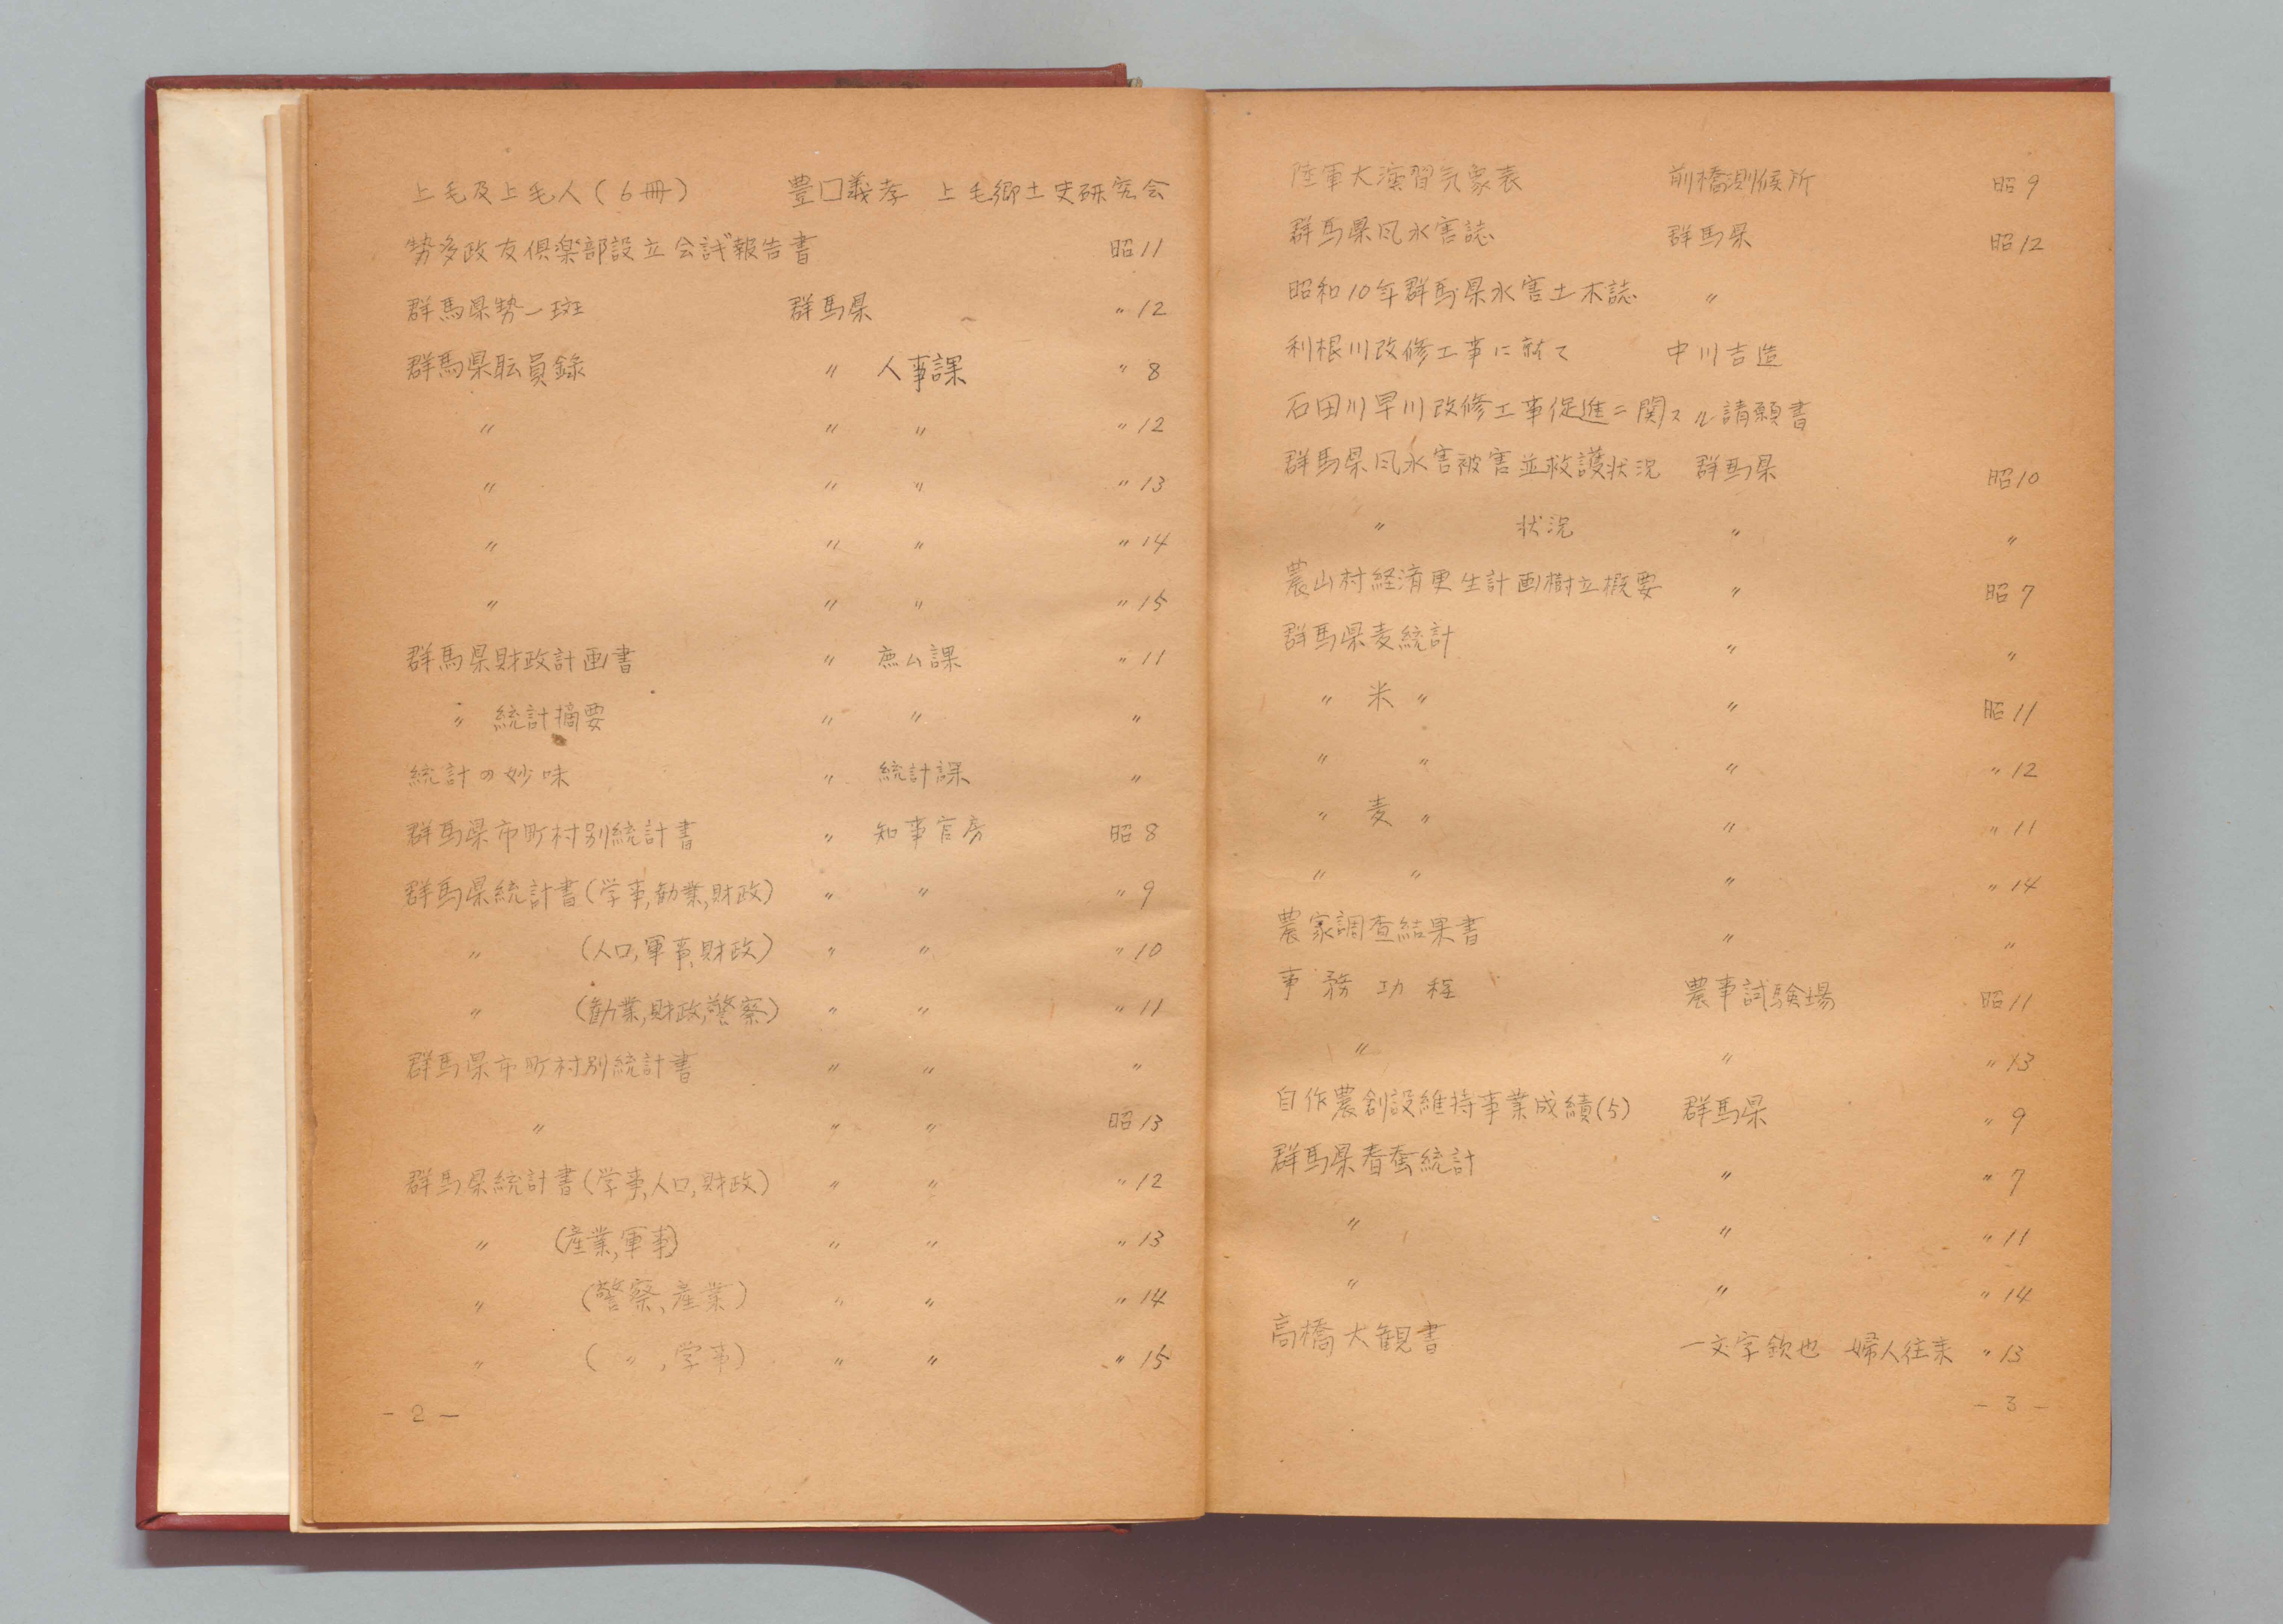 上毛及上毛人(6冊) 豊口義孝 上毛郷土史研究会
勢多政友倶楽部設立会試報告書 昭11
群馬県勢一班 群馬県 〃12
群馬県耺員録 〃 人事課 〃8
〃 〃 〃 〃12
〃 〃 〃 〃13
〃 〃 〃 〃14
〃 〃 〃 〃15
群馬県財政計画書 〃 庶ム課 〃11
〃 統計摘要 〃 〃 〃
統計の妙味 〃 統計課 〃
群馬県市町村別統計書 〃 知事官房 昭8
群馬県統計書(学事,勧業,財政) 〃 〃 〃9
〃 (人口,軍事,財政) 〃 〃 〃10
〃 (勧業,財政,警察) 〃 〃 〃11
群馬県市町村別統計書 〃 〃 〃
〃 〃 〃 昭13
群馬県統計書(学事,人口,財政) 〃 〃 〃12
〃 (産業,軍事) 〃 〃 〃13
〃 (警察、産業) 〃 〃 〃14
〃 (〃,学事) 〃 〃 〃15
- 2 -
陸軍大演習気象表 前橋測候所 昭9
群馬県風水害誌 群馬県 昭12
昭和10年群馬県水害土木誌 〃
利根川改修工事に就て 中川吉造
石田川早川改修工事促進ニ関スル請願書
群馬県風水害被害並救護状況 群馬県 昭10
〃 状況 〃 〃
農山村経済更生計画樹立概要 〃 昭7
群馬県麦統計 〃 〃
〃 米 〃 〃 昭11
〃 〃 〃 〃12
〃 麦 〃 〃 〃11
〃 〃 〃 〃14
農家調査結果書 〃 〃
事務功程 農事試験場 昭11
〃 〃 〃13
自作農創設維持事業成績(5) 群馬県 〃9
群馬県春蚕統計 〃 〃7
〃 〃 〃11
〃 〃 〃14
高橋大観書 一文字欽也 婦人往来 〃13
- 3 -